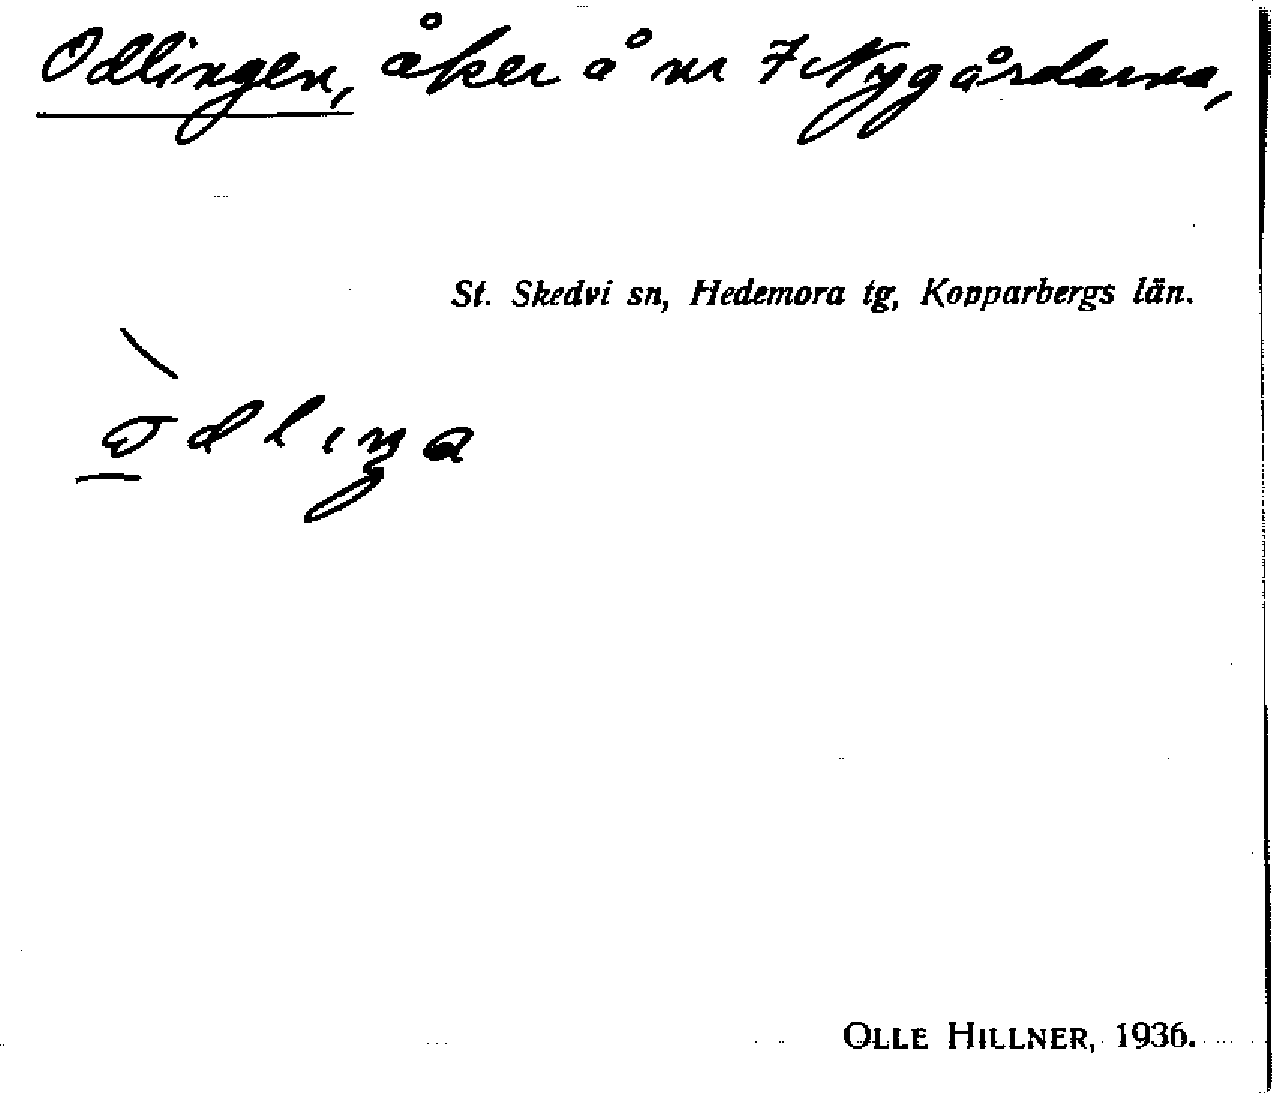 Odlingen, åker å nr 7 Nygårdarna,
St. Skedvi sn, Hedemora tg, Kopparbergs län.
OLLE HILLNER, 1936.